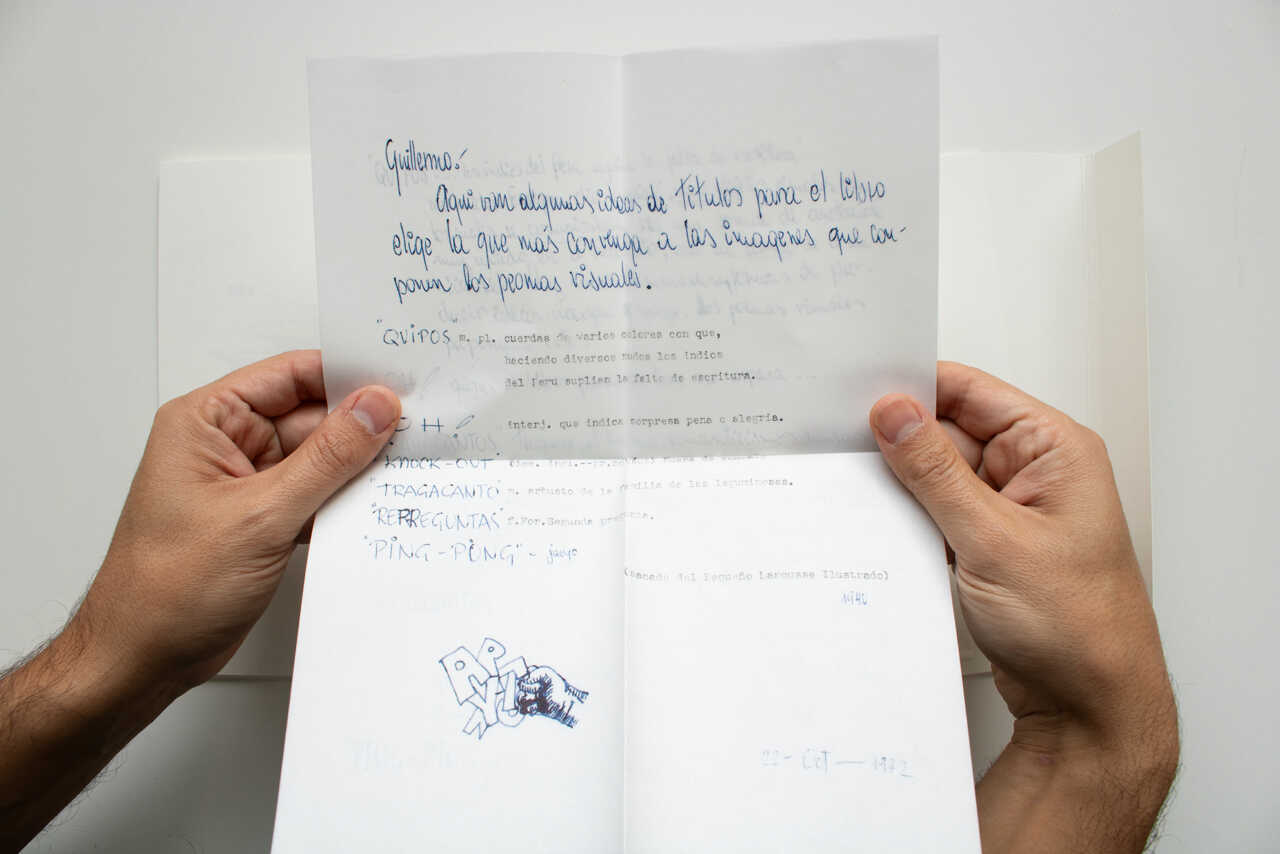 Guillermo:-
Aqui van algunas ideas de titulos para el libro
elige la que más convenga a las imagenes que com-
ponen los peomas visuales.
"QUIPOS" m. pl. cuerdas de varios colores con que,
haciendo diversos nudos los indios
del Peru suplian la falta de escritura.
O H interj. que indica sorpresa pena o alegria.
"KNOCK-OUT"
"TRAGACANTO" m. arbusto de la familia de las leguminosas.
"REPREGUNTAS" f.For.Segunda pregunta.
"PING-PONG" - juego
(sacado del Pequeño Larousse Ilustrado)
1940
22- Oct — 1972